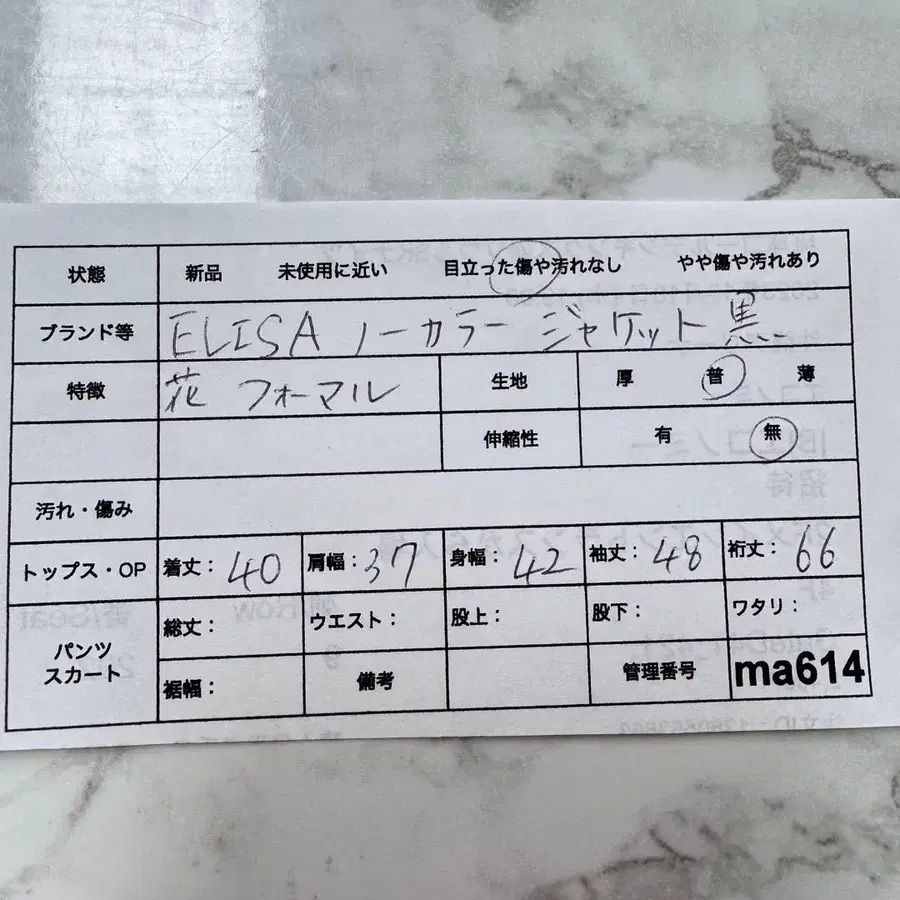 状態 新品 未使用に近い 目立った傷や汚れなし やや傷や汚れあり
ブランド等 ELISA ノーカラー ジャケット 黒
特徴 花 フォーマル 生地 厚 普 薄
伸縮性 有 無
汚れ・傷み
トップス・OP 着丈：40 肩幅：37 身幅：42 袖丈：48 裄丈：66
パンツ スカート 総丈： ウエスト： 股上： 股下： ワタリ：
裾幅： 備考 管理番号 ma614